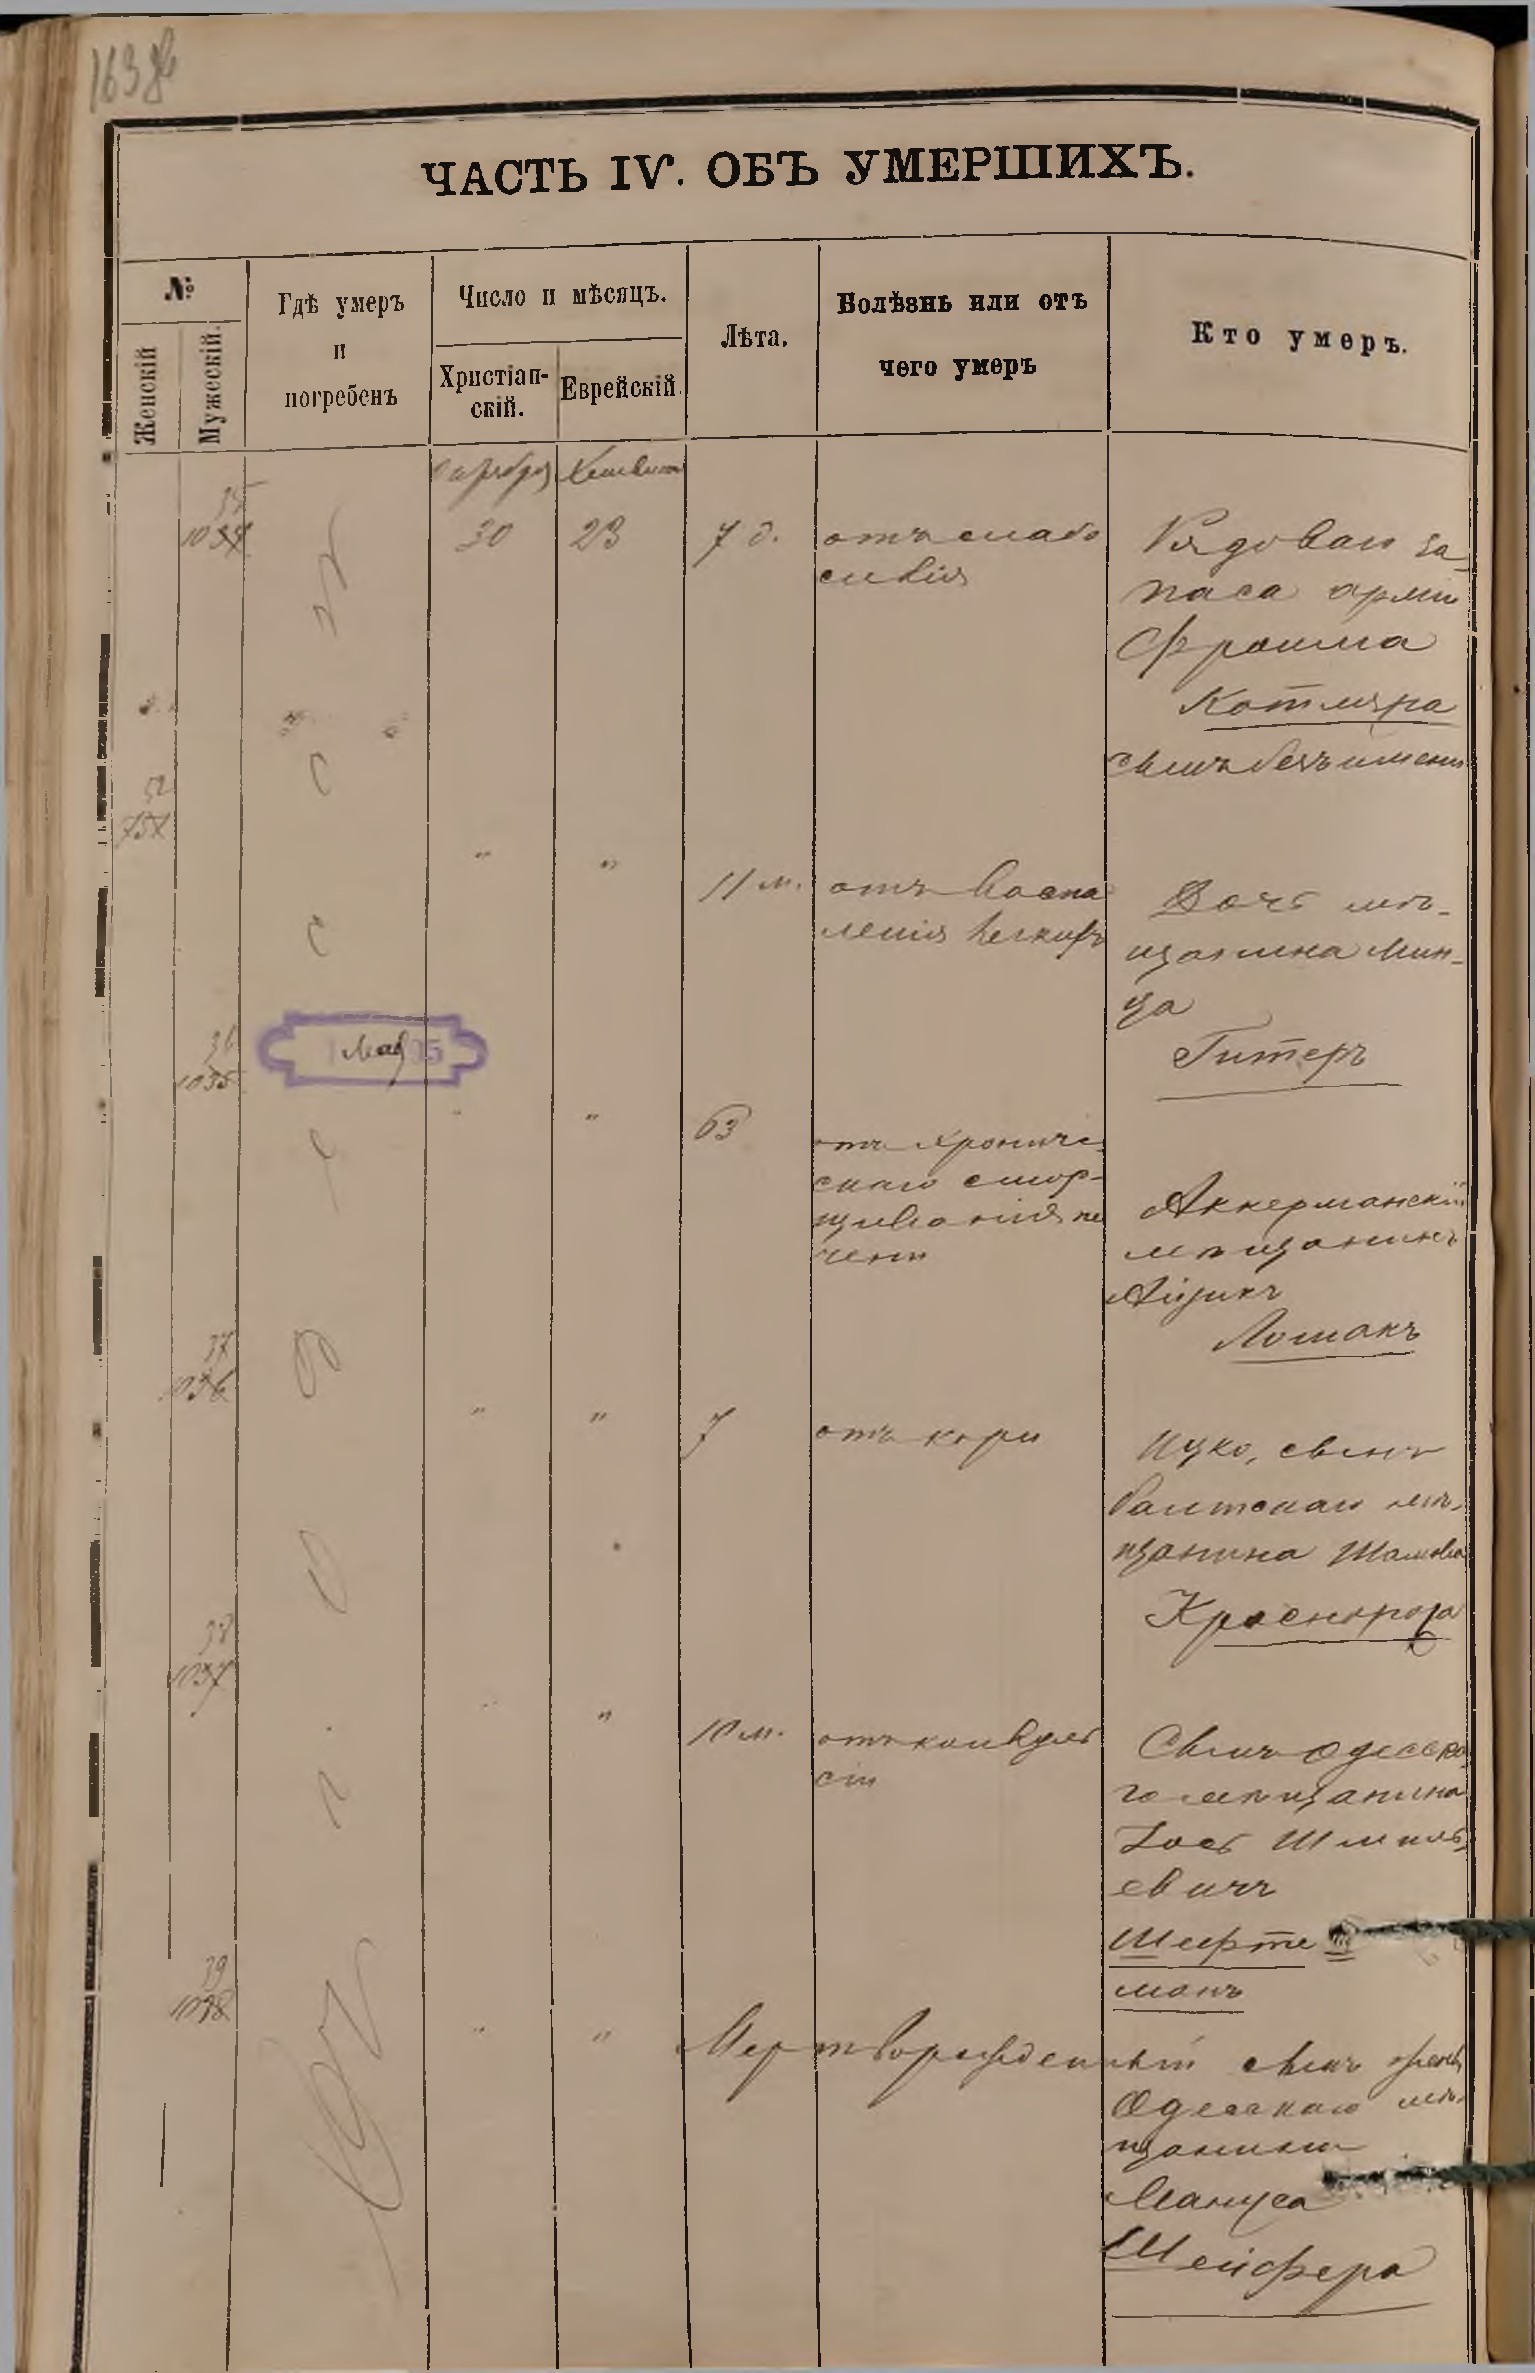 ЧАСТЬ IV. ОБЪ УМЕРШИХЪ.
№
Женскій
Мужескій.
Гдѣ умеръ
и
погребенъ
Число и мѣсяцъ.
Христіан-
скій.
Еврейскій.
Лѣта.
Болѣзнь или отъ
чего умеръ
Кто умеръ.
Октября Хешвана
35
1034
30 23 7 д. отъ слабо
силія
Рядоваго за-
паса арміи
Фроима
Котляра
сынъ безъ имени
52
757
" " 11 м. отъ воспа
ленія легкихъ
Дочь мѣ-
щанина Мин-
ца
Гитеръ
36
1035
" " 63 отъ хрониче
скаго смор-
щиванія пе
чени
Аккерманскій
мѣщанинъ
Айзикъ
Лошакъ
37
1036
" " 7 отъ кори
Ицко, сынъ
балтскаго мѣ-
щанина
Краснорога
38
1037
" " 10 м. отъ конвуль
сіи
Сынъ одесска-
го мѣщанина
Іось Шмиль-
евичъ
манъ
39
1038
" " Мертворожденный сынъ
Одесскаго мѣ-
щанина
Мануса
Шейфера